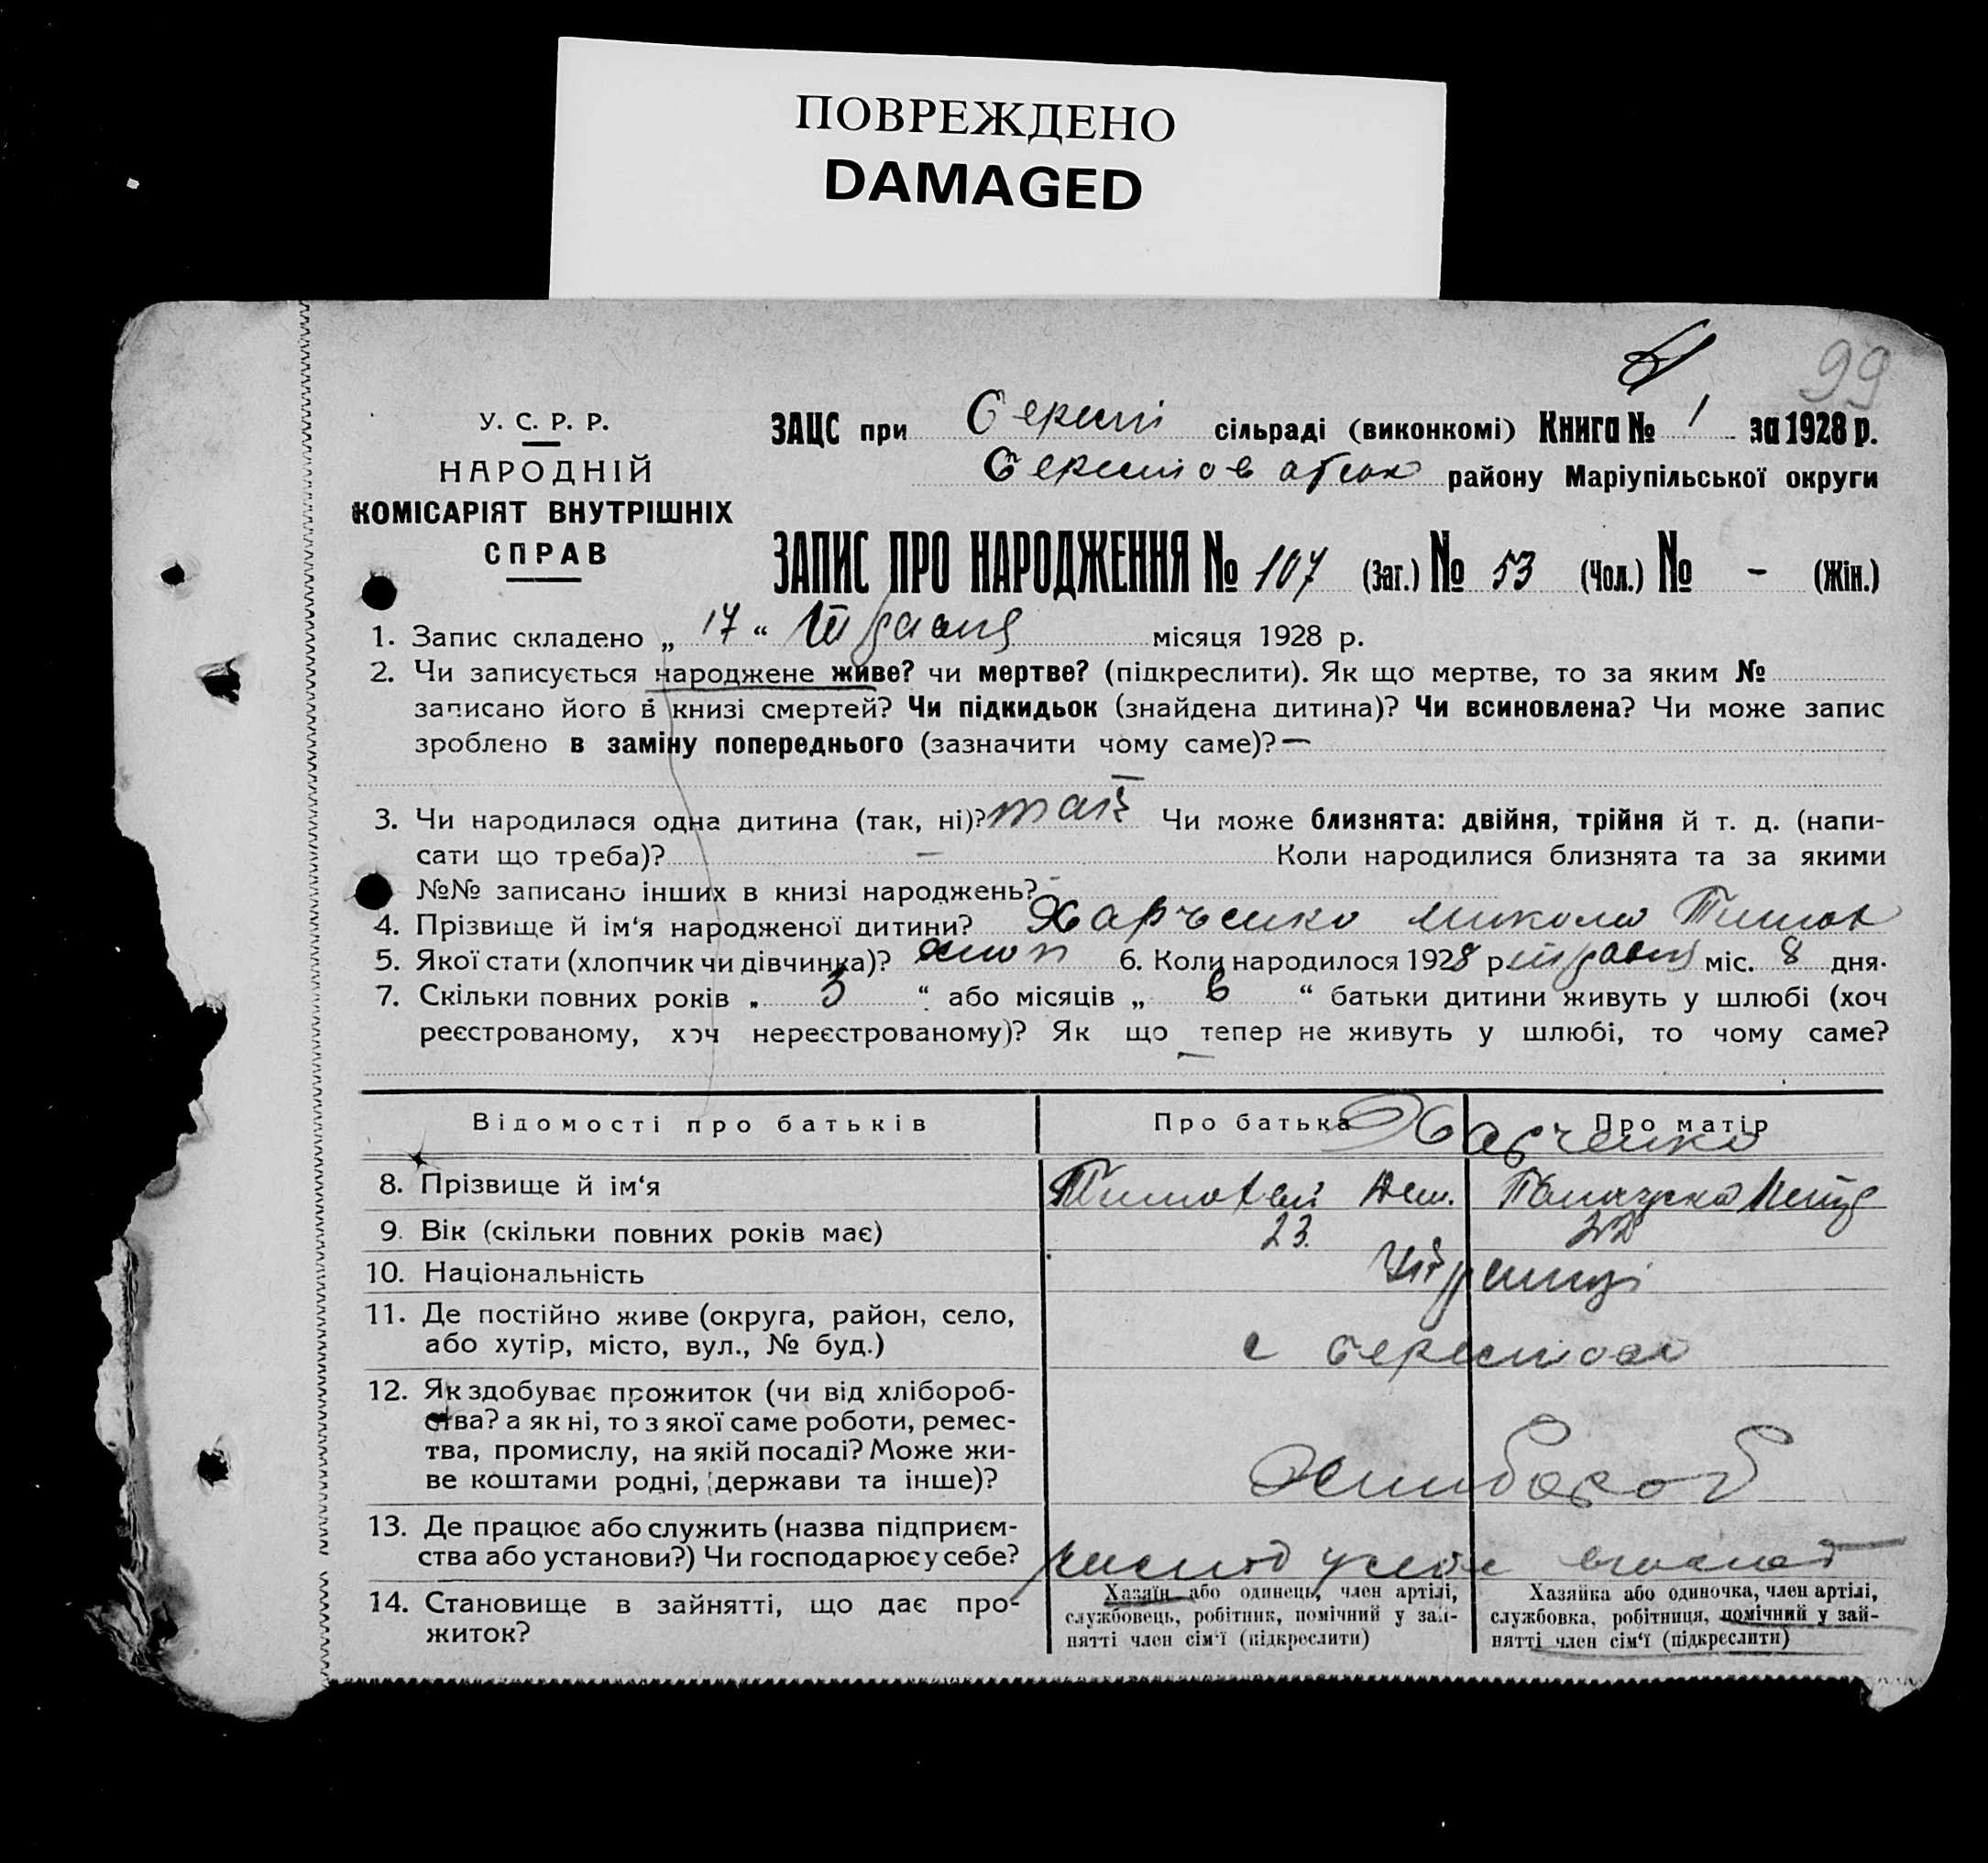 ПОВРЕЖДЕНО
DAMAGED
99
У. С. Р. Р.
НАРОДНІЙ
КОМІСАРІЯТ ВНУТРІШНІХ
СПРАВ
ЗАЦС при Берест сільраді (виконкомі) Книга № 1 за 1928 р.
району Маріупільської округи
ЗАПИС ПРО НАРОДЖЕННЯ № 107 (Заг.) № 53 (Чол.) № - (Жін.)
1. Запис складено „ 17 “ травня місяця 1928 р.
2. Чи записується народжене живе? чи мертве? (підкреслити). Як що мертве, то за яким №
записано його в книзі смертей? Чи підкидьок (знайдена дитина)? Чи всиновлена? Чи може запис
зроблено в заміну попереднього (зазначити чому саме)? —
3. Чи народилася одна дитина (так, ні)? так Чи може близнята: двійня, трійня й т. д. (напи-
сати що треба)? — Коли народилися близнята та за якими
№№ записано інших в книзі народжень? -
4. Прізвище й ім‘я народженої дитини? Харченко Микола Тимох
5. Якої стати (хлопчик чи дівчинка)? хлоп 6. Коли народилось 1928 р. травня міс. 8 дня.
7. Скільки повних років „ 3 “ або місяців „ 6 “ батьки дитини живуть у шлюбі (хоч
реєстрованому, хоч нереєстрованому)? Як що тепер не живуть у шлюбі, то чому саме?
—
Відомості про батьків Про батька Про матір
Харченко
8. Прізвище й ім‘я Тимофей
9. Вік (скільки повних років має) 23. 22
10. Національність Українці
11. Де постійно живе (округа, район, село,
або хутір, місто, вул., № буд.) с Берестове
12. Як здобуває прожиток (чи від хлібороб-
ства? а як ні, то з якої саме роботи, ремес-
тва, промислу, на якій посаді? Може жи-
ве коштами родні, держави та інше)? Хлибороб
13. Де працює або служить (назва підприєм-
ства або установи?) Чи господарює у себе?
14. Становище в зайнятті, що дає про-
житок?
Хазяїн або одинець, член артілі,
службовець, робітник, помічний у зай-
нятті член сім‘ї (підкреслити)
Хазяйка або одиночка, член артілі,
службовка, робітниця, помічний у зай-
нятті член сім‘ї (підкреслити)